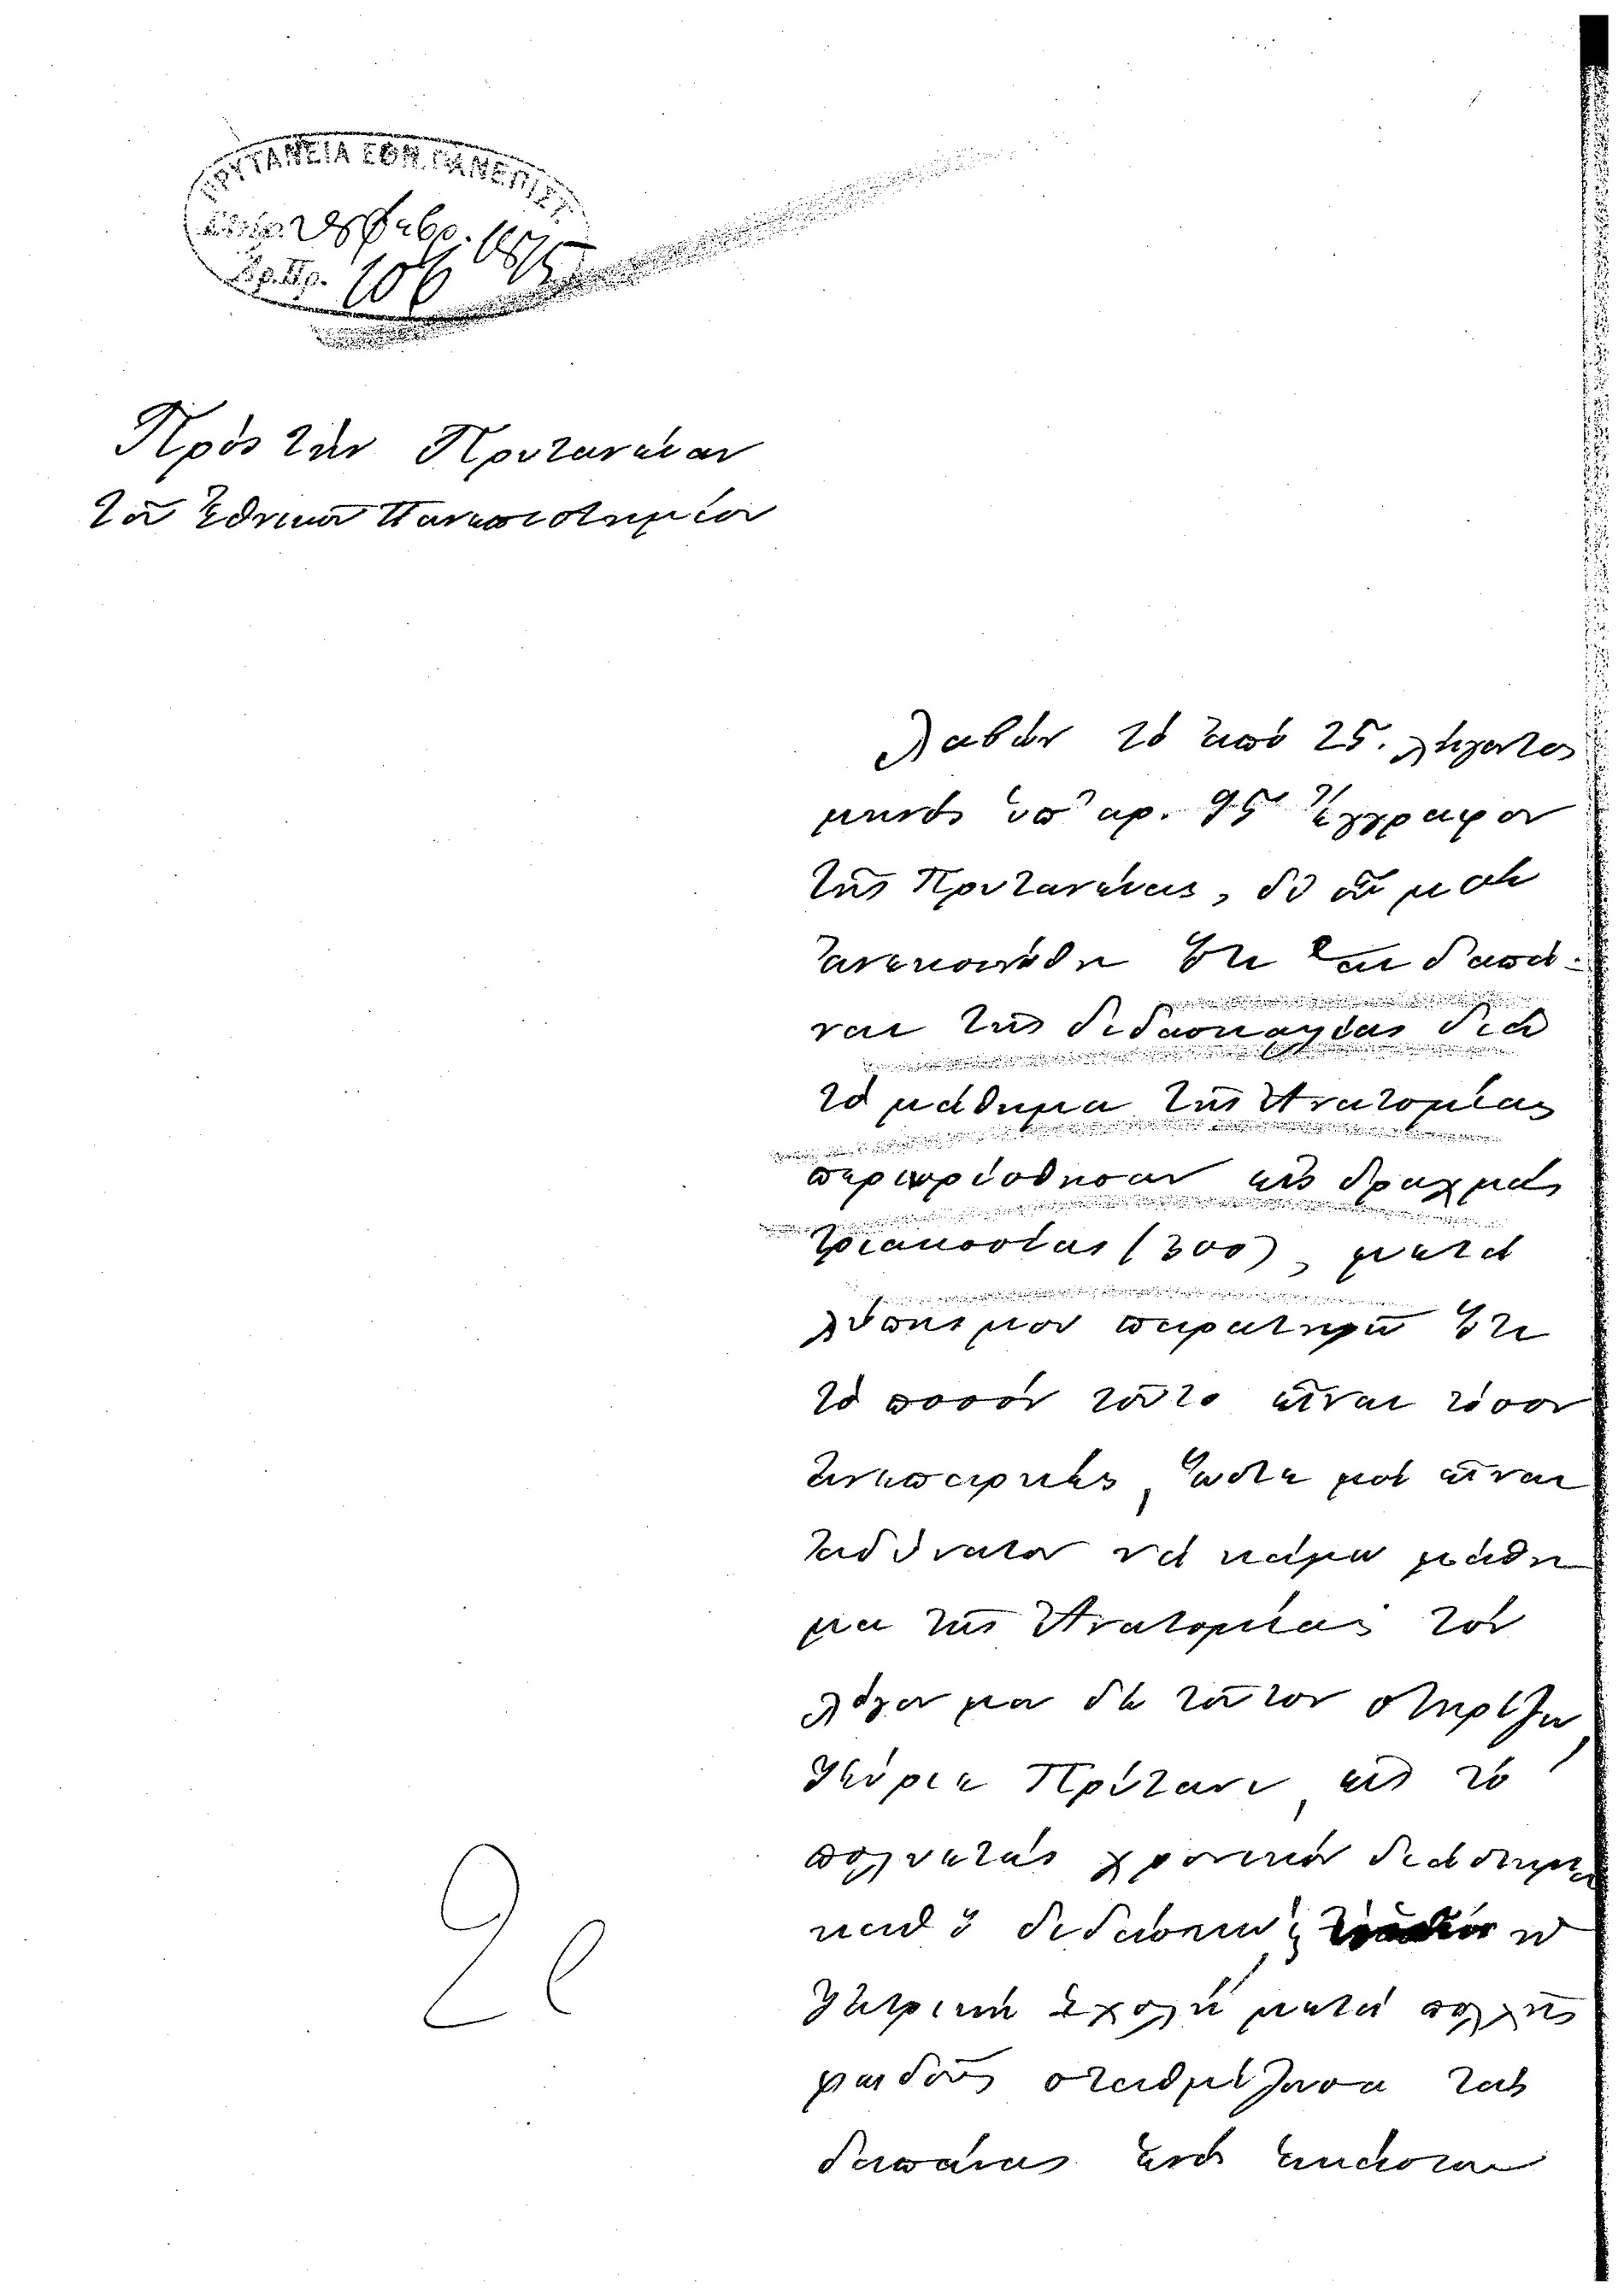 ΠΡΥΤΑΝΕΙΑ ΕΘΝ. ΠΑΝΕΠΙΣΤ.
28 φεβρ. 1875
Ἀρ. Πρ. 106
Πρὸς τὴν Πρυτανείαν
τοῦ Ἐθνικοῦ Πανεπιστημίου
Λαβὼν τὸ ἀπὸ 25. λήγοντος
μηνὸς ὑπ' ἀρ. 95 ἔγγραφον
τῆς Πρυτανείας, δι' οὗ μοὶ
ἀνεκοινώθη ὅτι αἱ δαπά-
ναι τῆς διδασκαλίας διὰ
τὸ μάθημα τῆς Ἀνατομίας
περιωρίσθησαν εἰς δραχμὰς
τριακοσίας (300), μετὰ
λύπης μου παρατηρῶ ὅτι
τὸ ποσὸν τοῦτο εἶναι τόσον
ἀνεπαρκές, ὥστε μοὶ εἶναι
ἀδύνατον νὰ κάμω μάθη
μα τῆς Ἀνατομίας· τὸν
λόγον μου δὲ τοῦτον στηρίζω,
Κύριε Πρύτανι, εἰς τὸ
πολυετὲς χρονικὸν διάστημα
καθ' ὃ διδάσκω
Ἰατρικὴ Σχολὴ μετὰ πολλῆς
φειδοῦς σταθμίζουσα τὰς
δαπάνας ἑνὸς ἑκάστου
2ε